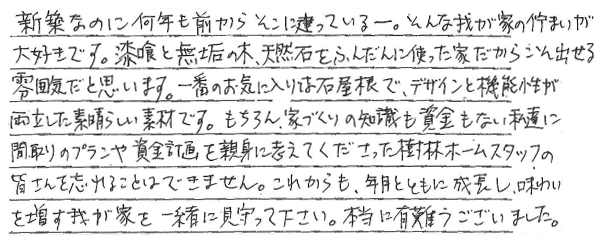 新築なのに何年も前からそこに建っている―。そんな我が家の佇まいが
大好きです。漆喰と無垢の木、天然石をふんだんに使った家だからこそ出せる
雰囲気だと思います。一番のお気に入りは石屋根で、デザインと機能性が
両立した素晴らしい素材です。もちろん、家づくりの知識も資金もない私達に
間取りのプランや資金計画を親身に考えてくださった樹林ホームスタッフの
皆さんを忘れることはできません。これからも、年月とともに成長し、味わい
を増す我が家を一緒に見守って下さい。本当に有難うございました。